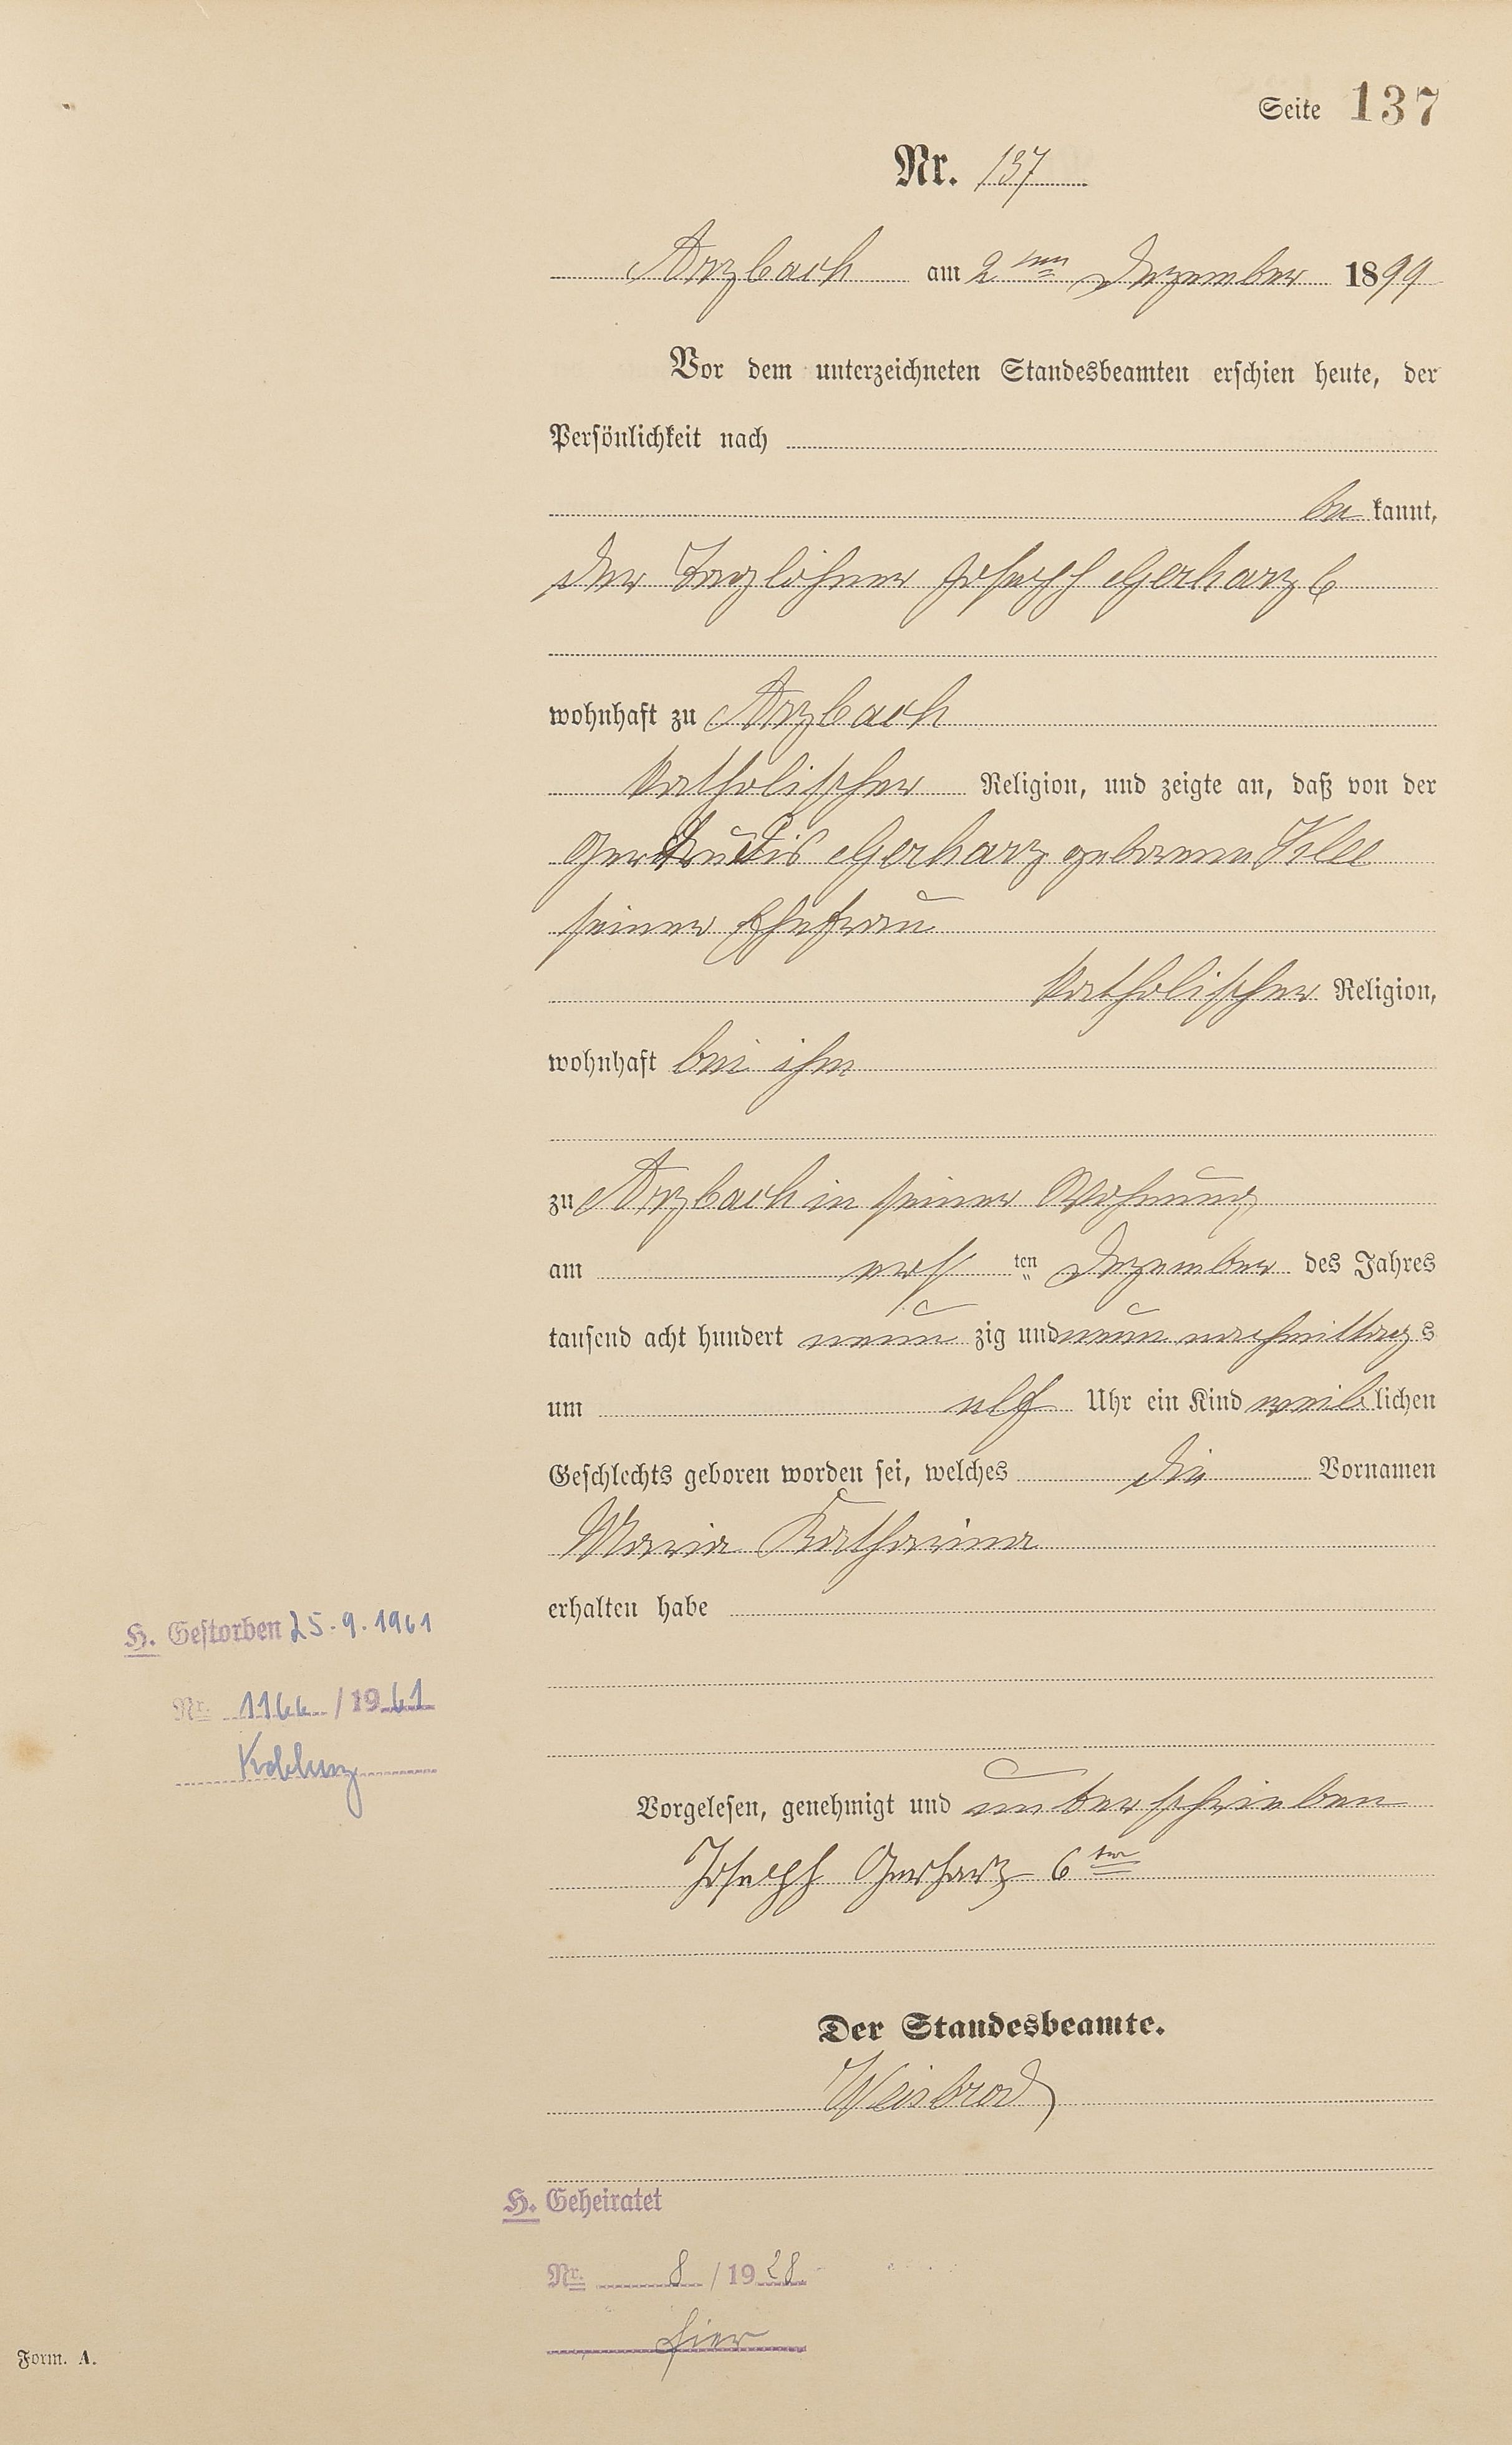 Seite 137
Nr. 137
Arzbach am 2ten Dezember 1899
Vor dem unterzeichneten Standesbeamten erschien heute, der
Persönlichkeit nach
be kannt,
der Taglöhner Joseph Gerharz 6
wohnhaft zu Arzbach
katholischer Religion, und zeigte an, daß von der
Gertrudis Gerharz geborene Klee
seiner Ehefrau
katholischer Religion,
wohnhaft bei ihm
zu Arzbach in seiner Wohnung
am ersten Dezember des Jahres
tausend acht hundert neun zig und neun nachmittags
um elf Uhr ein Kind weiblichen
Geschlechts geboren worden sei, welches die Vornamen
Maria Katharina
erhalten habe
H. Gestorben 25.9.1961
Nr. 1166 / 1961
Koblenz
Vorgelesen, genehmigt und unterschrieben
Joseph Gerharz 6ter
Der Standesbeamte.
Weisbrod
H. Geheiratet
Nr. 8 / 1928
hier
Form. A.